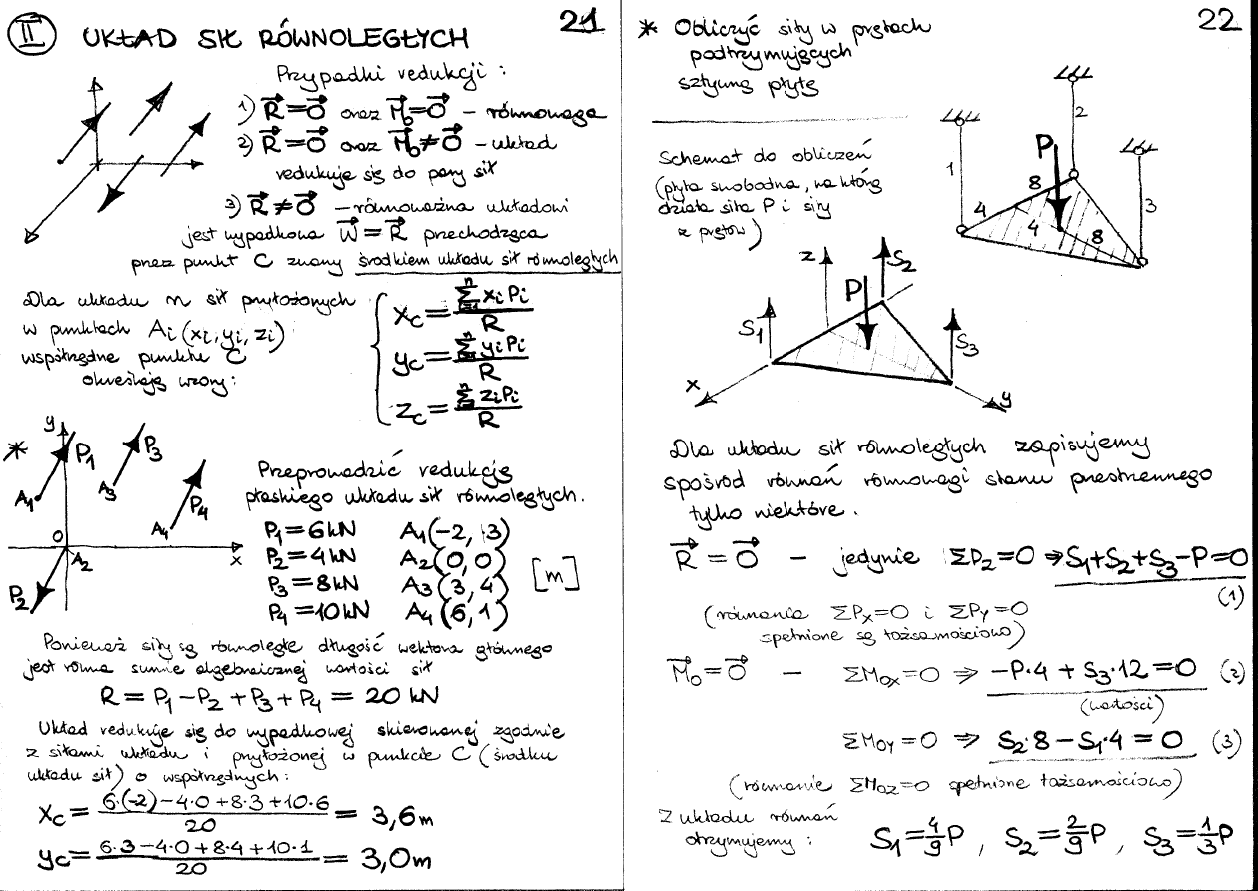 21
II UKŁAD SIŁ RÓWNOLEGŁYCH
Przypadki redukcji:
1) R=O oraz M₀=O – równowaga
2) R=O oraz M₀≠O – układ
redukuje się do pary sił
3) R≠O – równoważna układowi
jest wypadkowa W=R przechodząca
przez punkt C zwany środkiem układu sił równoległych
Dla układu n sił przyłożonych
w punktach Ai(xi, yi, zi)
współrzędne punktu C
określają wzory:
xc = Σxi Pi / R
yc = Σyi Pi / R
zc = Σzi Pi / R
* y P₁ P₃ A₁ A₃ P₄ A₄ O A₂ x P₂
Przeprowadzić redukcję
płaskiego układu sił równoległych.
P₁=6kN A₁(-2, 3)
P₂=4kN A₂(0, 0)
P₃=8kN A₃(3, 4) [m]
P₄=10kN A₄(6, 1)
Ponieważ siły są równoległe długość wektora głównego
jest równa sumie algebraicznej wartości sił
R = P₁ - P₂ + P₃ + P₄ = 20 kN
Układ redukuje się do wypadkowej skierowanej zgodnie
z siłami układu i przyłożonej w punkcie C (środku
układu sił) o współrzędnych:
xc = 6·(-2) - 4·0 + 8·3 + 10·6 / 20 = 3,6m
yc = 6·3 - 4·0 + 8·4 + 10·1 / 20 = 3,0m
22
* Obliczyć siły w prętach
podtrzymujących
sztywną płytę
1 2 3 P 8 4 4 8
Schemat do obliczeń
(płyta swobodna, na którą
działa siła P i siły
z prętów)
z S₂ P S₁ S₃ x y
Dla układu sił równoległych zapisujemy
spośród równań równowagi stanu przestrzennego
tylko niektóre.
R = O – jedynie ΣPz=0 ⇒ S₁+S₂+S₃-P=0
(1)
(równania ΣPx=0 i ΣPy=0
spełnione są tożsamościowo)
M₀=O – ΣMox=0 ⇒ -P·4 + S₃·12 = 0 (2)
(wartości)
ΣMoy=0 ⇒ S₂·8 - S₁·4 = 0 (3)
(równanie ΣMoz=0 spełnione tożsamościowo)
Z układu równań
otrzymujemy: S₁=4/9P, S₂=2/9P, S₃=1/3P